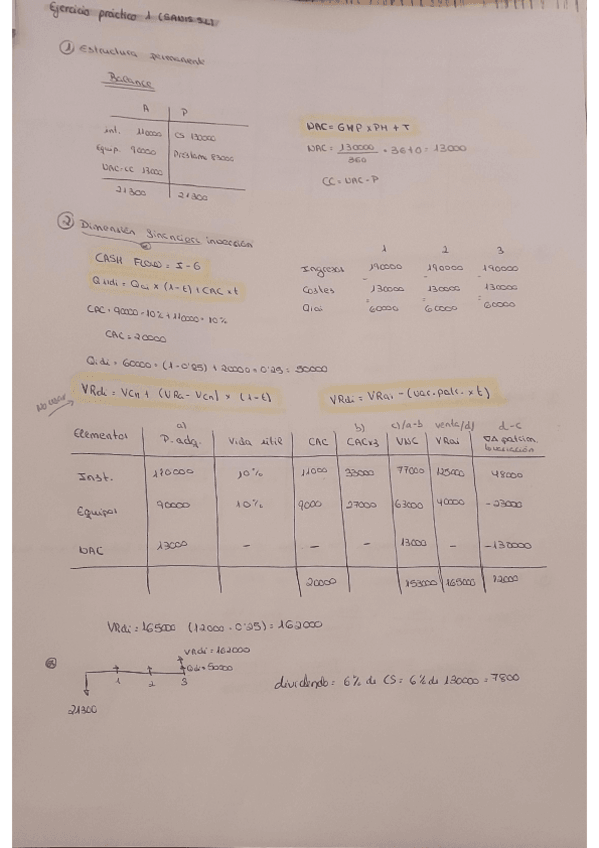 Ejercicio práctico 1 (SANIS SL)
① Estructura permanente
Balance
A P
inl. 110000 CS 130000
Equip. 90000 Préstamo 83000
NAC-CC 13000
21300 21300
NAC = GMP x PM + T
NAC = 130000/360 · 36+0 = 13000
CC = NAC - P
② Dimensión financiera inversión
CASH FLOW = I - G
Qidi = Qai x (1-t) + CAC x t
CAC = 90000 · 10% + 110000 · 10%
CAC = 20000
1 2 3
Ingresos 190000 190000 190000
Costes 130000 130000 130000
Qiai 60000 60000 60000
Qidi = 60000 · (1-0'25) + 20000 · 0'25 = 50000
No usar
VRdi = VCn + (VRa - VCn) x (1-t)
VRdi = VRai - (var. patr. x t)
a) b) c)/a-b venta/d) d-c
Elementos P. adq. Vida útil CAC CACx3 VNC VRai
Inst. 110000 10% 11000 33000 77000 125000 48000
Equipos 90000 10% 9000 27000 63000 40000 -23000
NAC 13000 - - - 13000 - -130000
20000 153000 165000 12000
VRdi = 165000 (12000 · 0'25) = 162000
VRdi = 162000
Qdi = 50000
1 2 3
21300
dividendo = 6% de CS = 6% de 130000 = 7800